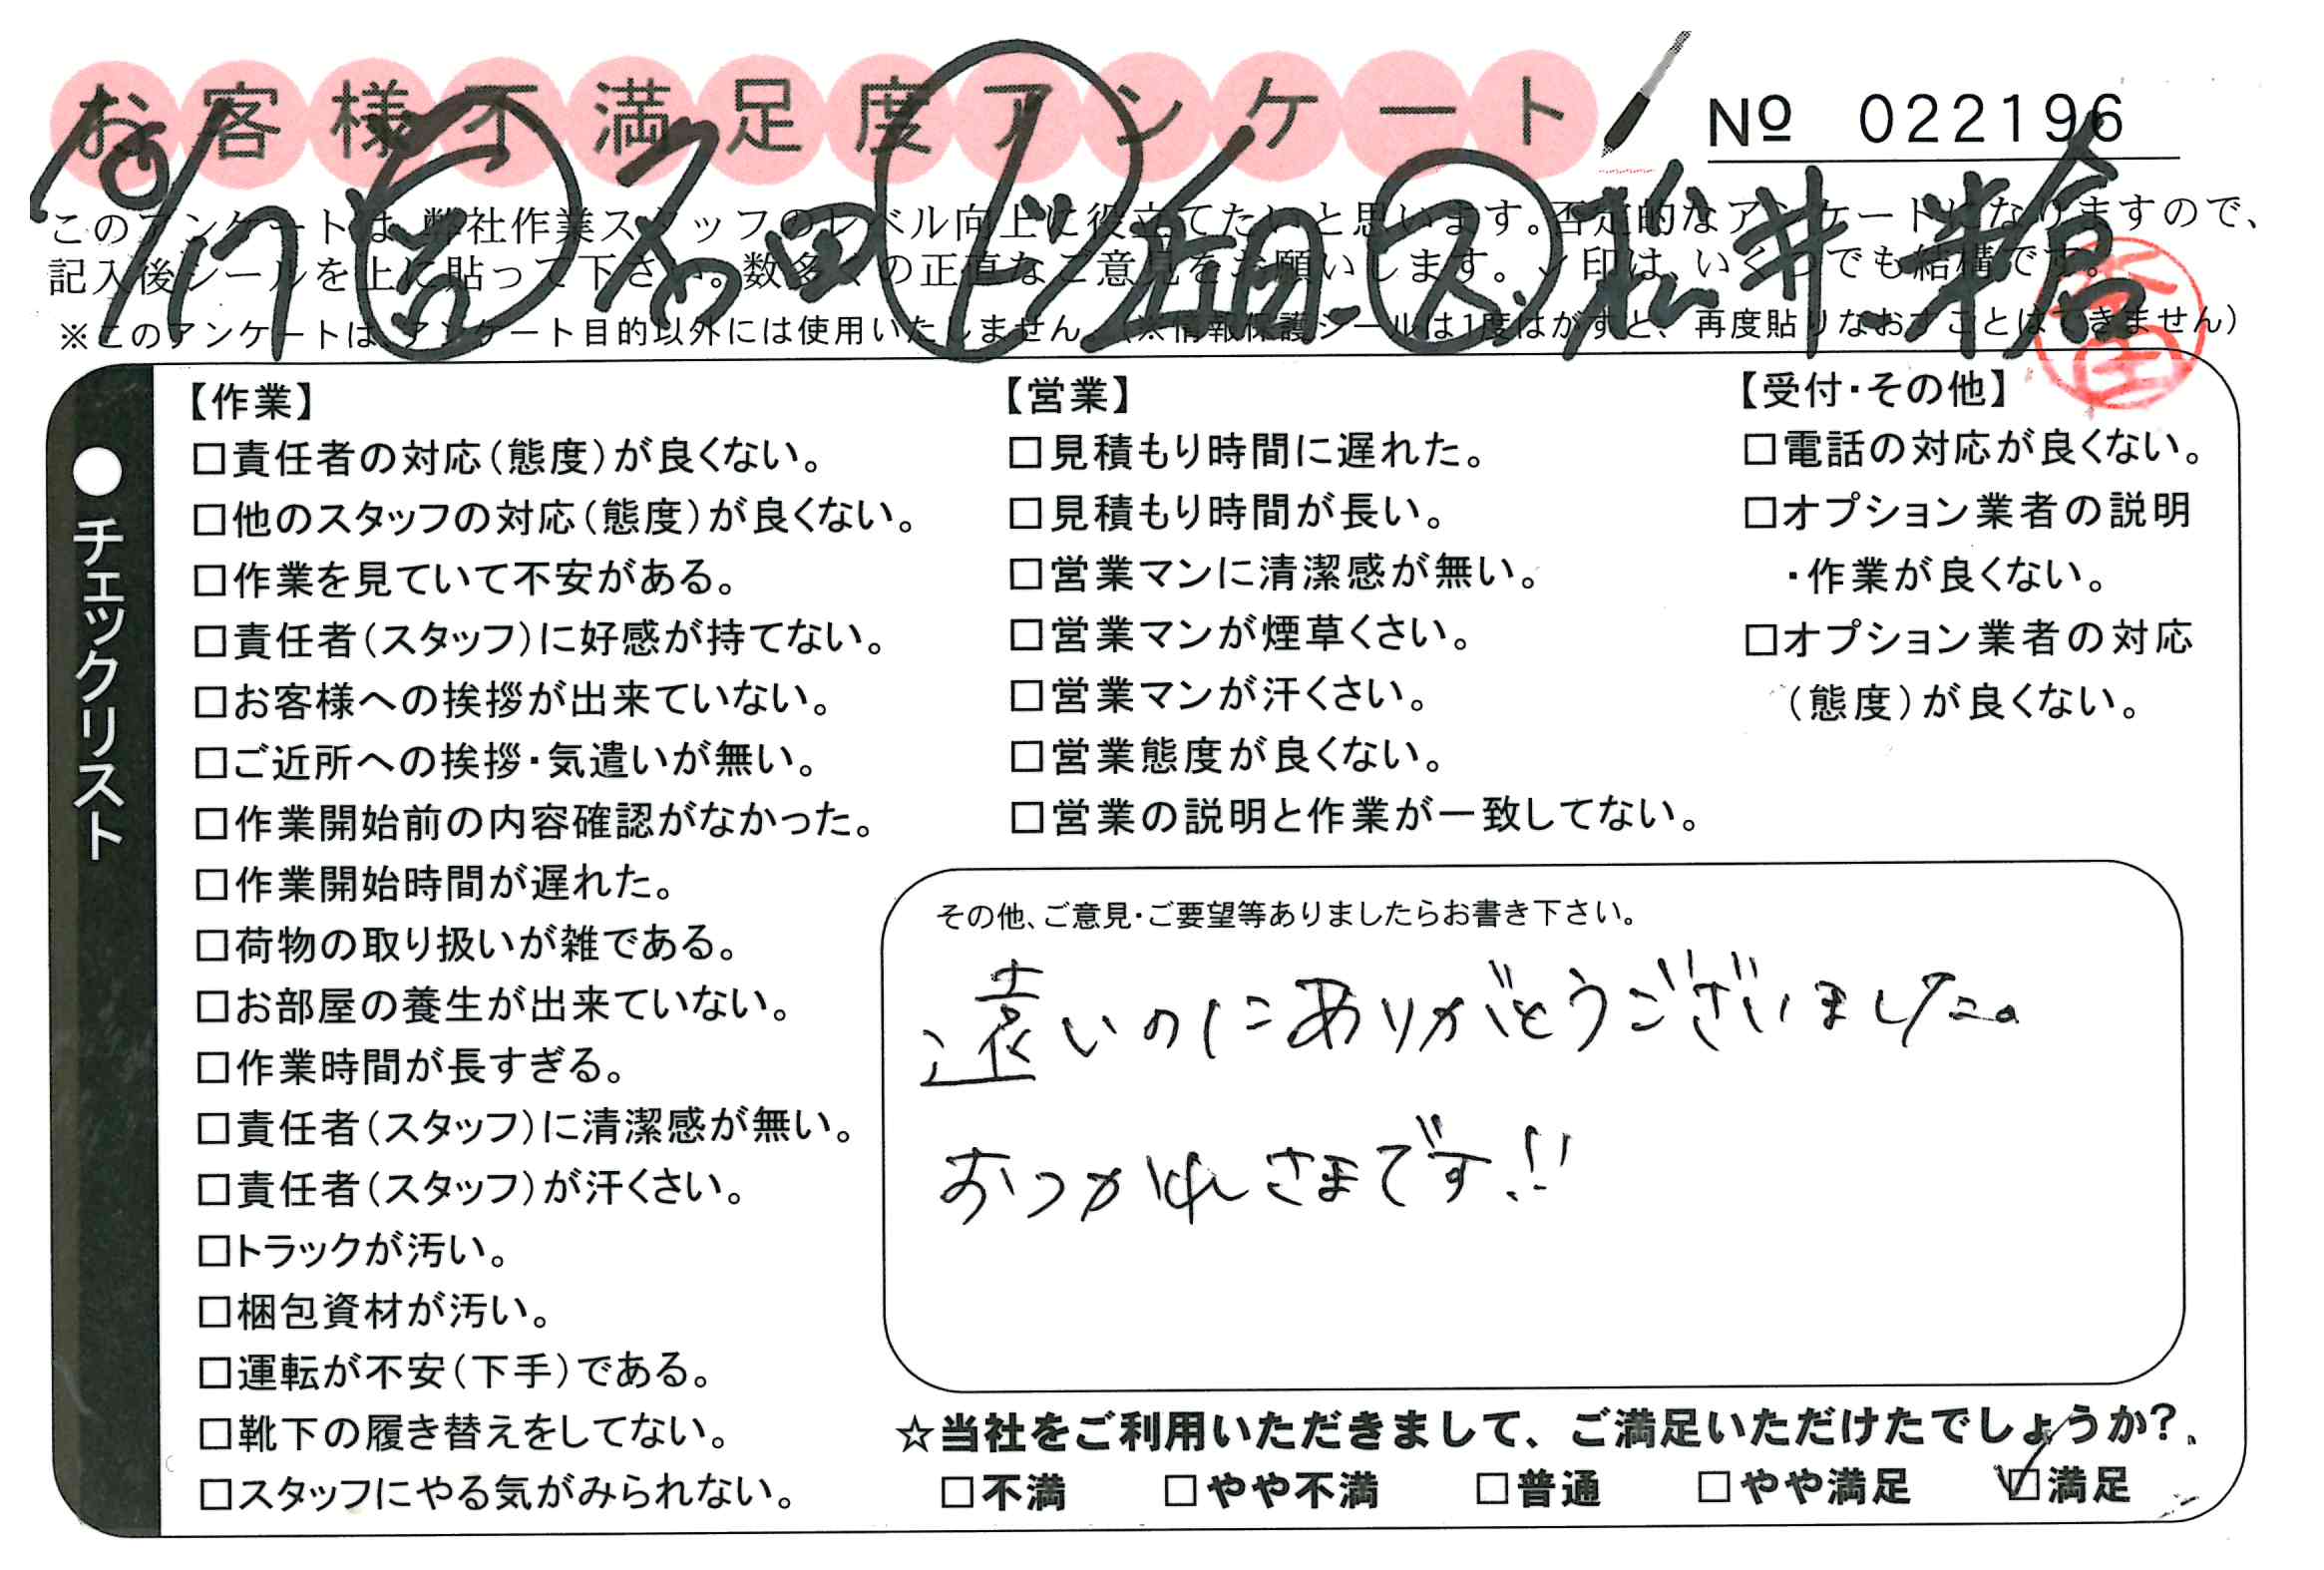 お客様不満足度アンケート
№ 022196
このアンケートは、弊社作業スタッフのレベル向上に役立てたいと思います。否定的なアンケートになりますので、
記入後シールを上に貼って下さい。数多くの正直なご意見をお願いします。レ印は、いくつでも結構です。
※このアンケートは、アンケート目的以外には使用いたしません。(※情報保護シールは1度はがすと、再度貼りなおすことはできません)
9/17
松井
●チェックリスト
【作業】
□責任者の対応(態度)が良くない。
□他のスタッフの対応(態度)が良くない。
□作業を見ていて不安がある。
□責任者(スタッフ)に好感が持てない。
□お客様への挨拶が出来ていない。
□ご近所への挨拶・気遣いが無い。
□作業開始前の内容確認がなかった。
□作業開始時間が遅れた。
□荷物の取り扱いが雑である。
□お部屋の養生が出来ていない。
□作業時間が長すぎる。
□責任者(スタッフ)に清潔感が無い。
□責任者(スタッフ)が汗くさい。
□トラックが汚い。
□梱包資材が汚い。
□運転が不安(下手)である。
□靴下の履き替えをしてない。
□スタッフにやる気がみられない。
【営業】
□見積もり時間に遅れた。
□見積もり時間が長い。
□営業マンに清潔感が無い。
□営業マンが煙草くさい。
□営業マンが汗くさい。
□営業態度が良くない。
□営業の説明と作業が一致してない。
【受付・その他】
□電話の対応が良くない。
□オプション業者の説明
・作業が良くない。
□オプション業者の対応
(態度)が良くない。
その他、ご意見・ご要望等ありましたらお書き下さい。
遠いのにありがとうございました。
おつかれさまです!!
☆当社をご利用いただきまして、ご満足いただけたでしょうか?
□不満 □やや不満 □普通 □やや満足 ☑満足